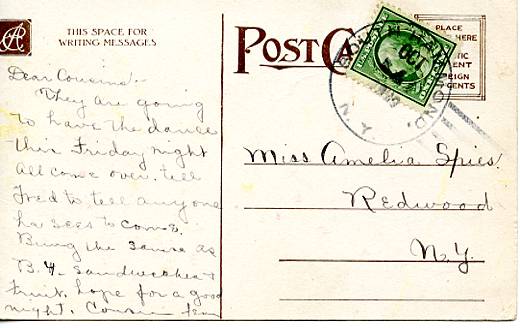 THIS SPACE FOR
WRITING MESSAGES
POST CA
PLACE
HERE
TIC
ENT
EIGN
CENTS
SOUTH HAMMOND.
OCT
N.Y.
Dear Cousins:-
They are going
to have the dance
this Friday night
all come over. tell
Fred to tell any one
he sees to come.
Bring the same as
B.4. sandwiches &
fruit. hope for a good
night. Cousin Fern
Miss Amelia Spies.
Redwood
N.Y.